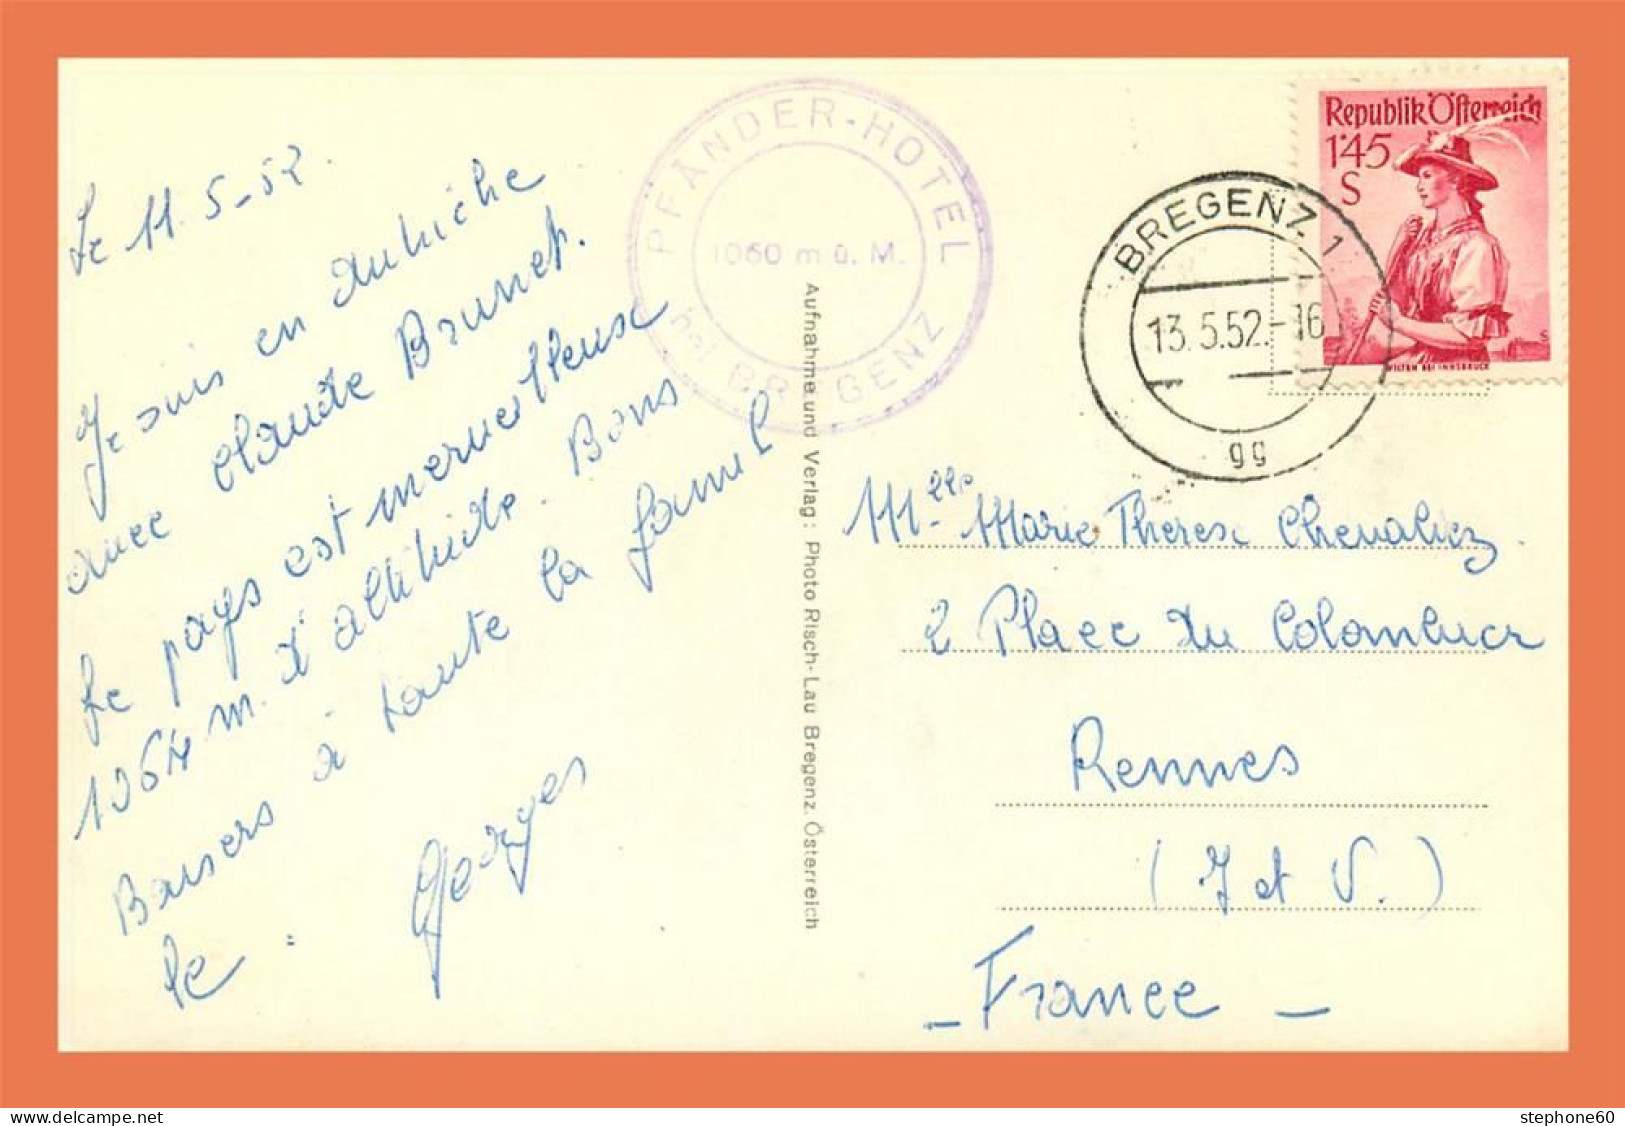 Le 11.5-52.
Je suis en Autriche
avec Claude Brunet.
Le pays est merveilleuse
1064 m. d'altitude. Bons
Baisers à toute la famil
le.
Georges
PFÄNDER-HOTEL
1060 m ü. M.
bei BREGENZ
Aufnahme und Verlag: Photo Risch-Lau Bregenz. Österreich
Republik Österreich
1'45
S
WILTEN BEI INNSBRUCK
BREGENZ 1
13.5.52.-16
gg
Mlle Marie Therese Chevalier
2 Place du Colombier
Rennes
(I et V.)
- France -
stephone60